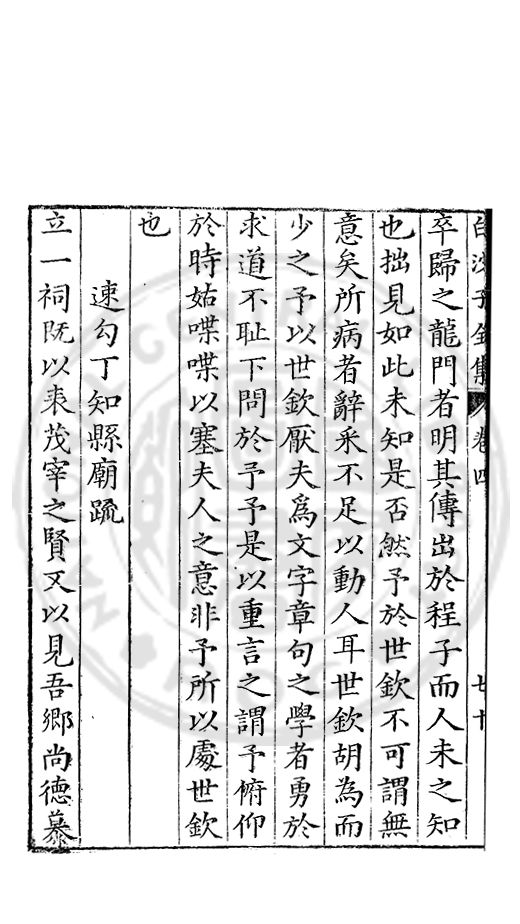 白沙子全集 卷四 七十
卒歸之龍門者明其傳出於程子而人未之知
也拙見如此未知是否然予於世欽不可謂無
意矣所病者辭采不足以動人耳世欽胡為而
少之予以世欽厭夫為文字章句之學者勇於
求道不耻下問於予予是以重言之謂予俯仰
於時姑喋喋以塞夫人之意非予所以處世欽
也
速勾丁知縣廟疏
立一祠既以表茂宰之賢又以見吾鄉尚德慕